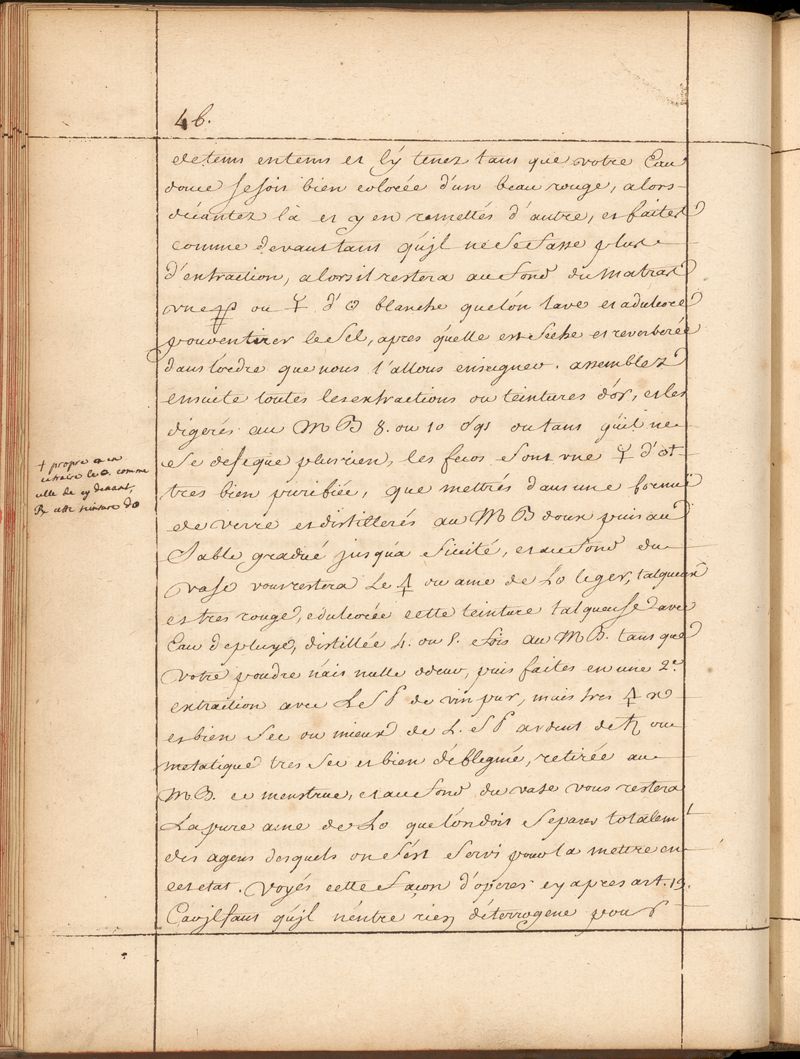 46.
de tems en tems et l'y tenez tant que votre Eau
doucе se soit bien colorée d'un beau rouge, alors
décantez là et y en remettés d'autre, et faites
comme devant tant qu'jl ne se fasse plus
d'extraction, alors il restera au fond du matras
vne ou 🜃 d'☉ blanche que lón lave et adulcore
pour en tirer le sel, apres qu'elle est séche et reverberée
dans l'ordre que nous l'allons enseigner. assemblez
ensuite toutes les extractions ou teintures d'ór, et les
digerés au MB 8. ou 10 ou tant qu'il ne
se defeque plus rien, les feces sont vne 🜃 d'☉ +
tres bien purifiée, que mettrés dans une cornuë
de verre et distillerés au MB doux puis au
sable gradué jusqu'a sicité, et au fond du
vase vous restera Le 🜍 ou ame de Lo leger, talqueux
et tres rouge, edulcorée cette teinture talqueuse avec
Eau de pluye, distillée 4. ou 5. fois au MB. tant que
votre poudre n'ait nulle odeur, puis faites en une 2.e
extraction avec L'esp de vin pur, mais tres
et bien sec ou mieux de L. esp ardent de ♄ ou
metalique tres sec et bien déflegmé, retirée au
MB. ce menstrue, et au fond du vase vous restera
La pure ame de Lo que l'on doit separer totalemt
des agens desquels on s'ést servi pour la mettre en
cet etat. Voyés cette façon d'operer cy apres art. 13.
Car jl faut qu'jl n'entre rien d'éterrogene pour
+ propre a en
extraire le comme
elle de cy devant,
℞ cette teinture d☉